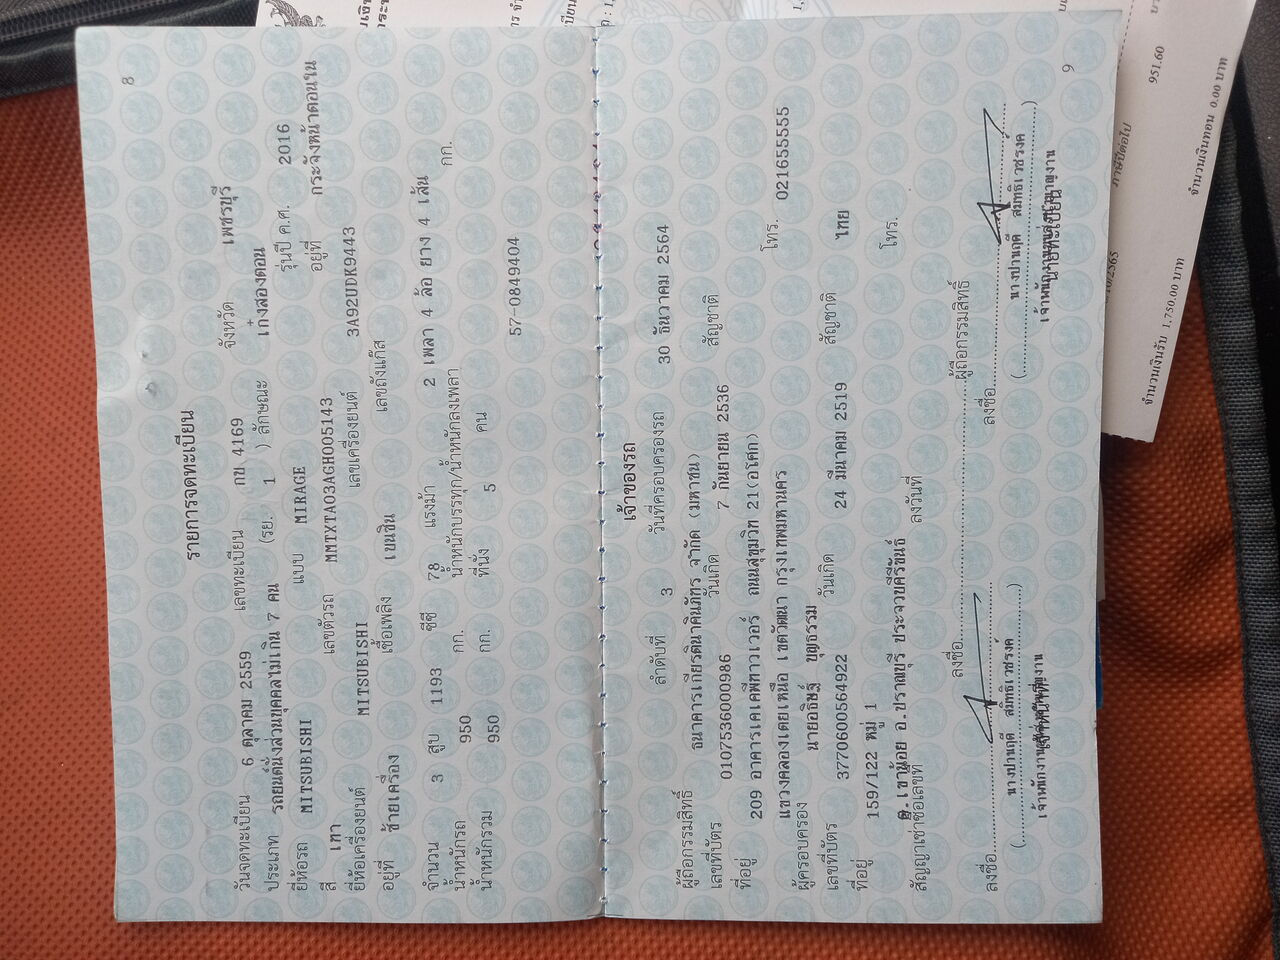 8
รายการจดทะเบียน
วันจดทะเบียน 6 ตุลาคม 2559 เลขทะเบียน กข 4169 จังหวัด เพชรบุรี
ประเภท รถยนต์นั่งส่วนบุคคลไม่เกิน 7 คน (รย. 1 ) ลักษณะ เก๋งสองตอน
ยี่ห้อรถ MITSUBISHI แบบ MIRAGE รุ่นปี ค.ศ. 2016
สี เทา เลขตัวรถ MMTXTA03AGH005143 อยู่ที่ กระจังหน้าตอนใน
ยี่ห้อเครื่องยนต์ MITSUBISHI เลขเครื่องยนต์ 3A92UDK9443
อยู่ที่ ซ้ายเครื่อง เชื้อเพลิง เบนซิน เลขถังแก๊ส
จำนวน 3 สูบ 1193 ซีซี 78 แรงม้า 2 เพลา 4 ล้อ ยาง 4 เส้น
น้ำหนักรถ 950 กก. น้ำหนักบรรทุก/น้ำหนักลงเพลา กก.
น้ำหนักรวม 950 กก. ที่นั่ง 5 คน
57-0849404
เจ้าของรถ
ลำดับที่ 3 วันที่ครอบครองรถ 30 ธันวาคม 2564
ผู้ถือกรรมสิทธิ์ ธนาคารเกียรตินาคินภัทร จำกัด (มหาชน)
เลขที่บัตร 0107536000986 วันเกิด 7 กันยายน 2536 สัญชาติ
ที่อยู่ 209 อาคารเคเคพีทาวเวอร์ ถนนสุขุมวิท 21(อโศก)
แขวงคลองเตยเหนือ เขตวัฒนา กรุงเทพมหานคร โทร. 021655555
ผู้ครอบครอง นายอธิษฐ์ บุญธรรม
เลขที่บัตร 3770600564922 วันเกิด 24 มีนาคม 2519 สัญชาติ ไทย
ที่อยู่ 159/122 หมู่ 1
ต.เขาน้อย อ.ปราณบุรี ประจวบคีรีขันธ์ โทร.
สัญญาเช่าซื้อเลขที่ ลงวันที่
ลงชื่อ ผู้ถือกรรมสิทธิ์
ลงชื่อ ลงชื่อ
(นางปานฤดี สมิทธิเวชรงค์) (นางปานฤดี สมิทธิเวชรงค์)
นายทะเบียน
9
951.60
ภาษีปีต่อไป
จำนวนเงินรับ 1,750.00 บาท
จำนวนเงินทอน 0.00 บาท